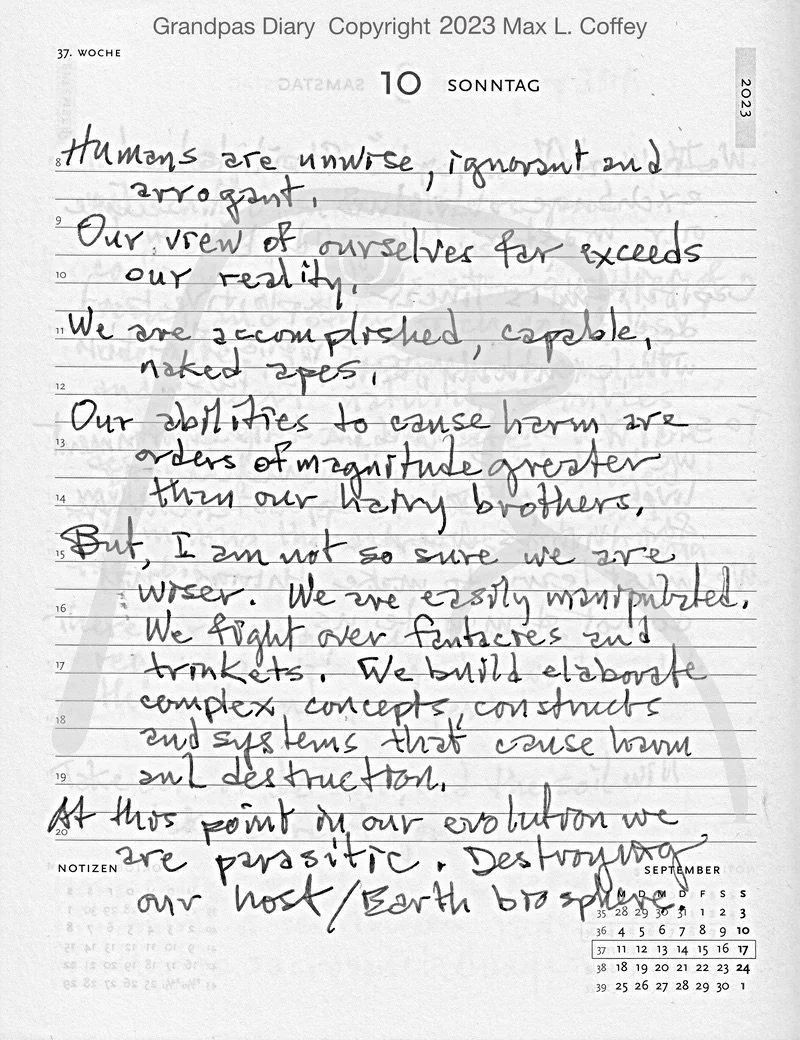 Grandpas Diary Copyright 2023 Max L. Coffey
37. WOCHE
10 SONNTAG
2023
8 Humans are unwise, ignorant and
arrogant.
9 Our view of ourselves far exceeds
10 our reality.
11 We are accomplished, capable,
naked apes.
12
Our abilities to cause harm are
13 orders of magnitude greater
14 than our hairy brothers.
15 But, I am not so sure we are
wiser. We are easily manipulated.
16 We fight over fantacies and
17 trinkets. We build elaborate
complex concepts, constructs
18 and systems that cause harm
19 and destruction.
At this point in our evolution we
20
are parasitic. Destroying
NOTIZEN
our host/Earth biosphere.
SEPTEMBER
M D M D F S S
35 28 29 30 31 1 2 3
36 4 5 6 7 8 9 10
37 11 12 13 14 15 16 17
38 18 19 20 21 22 23 24
39 25 26 27 28 29 30 1